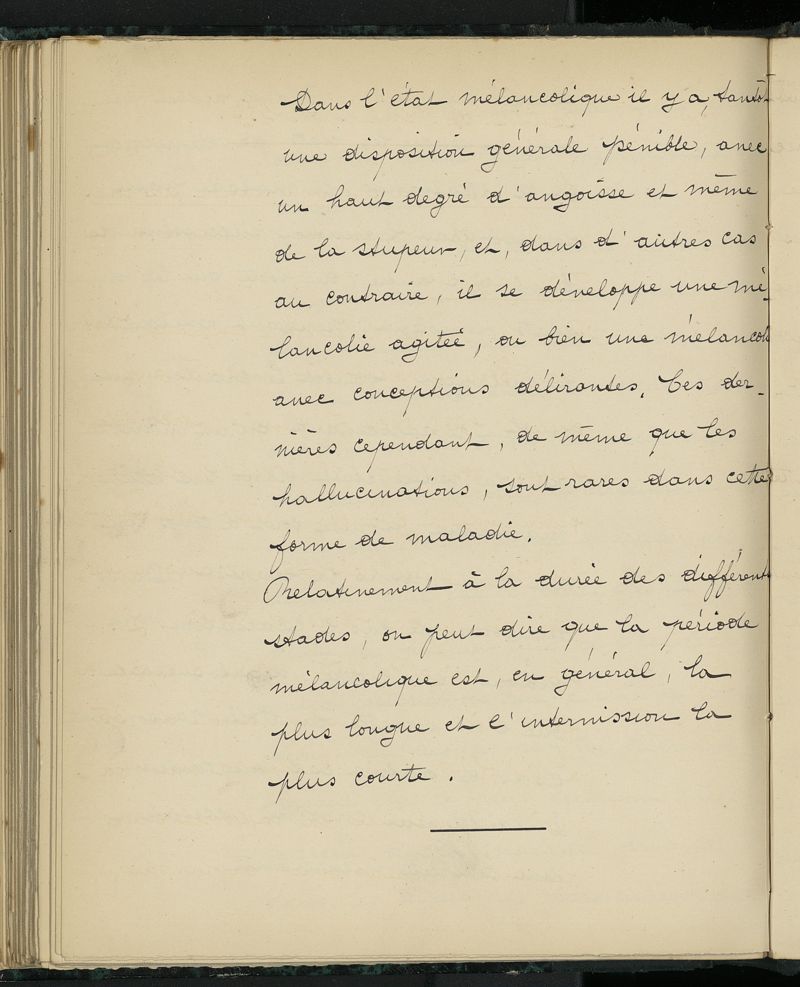 Dans l'état mélancolique il y a, tantôt
une disposition générale pénible, avec
un haut degré d'angoisse et même
de la stupeur, et, dans d'autres cas
au contraire, il se développe une mé-
lancolie agitée, ou bien une mélancoli
avec conceptions délirantes. Ces der-
nières cependant, de même que les
hallucinations, sont rares dans cette
forme de maladie.
Relativement à la durée des différents
stades, on peut dire que la période
mélancolique est, en général, la
plus longue et l'intermission la
plus courte.